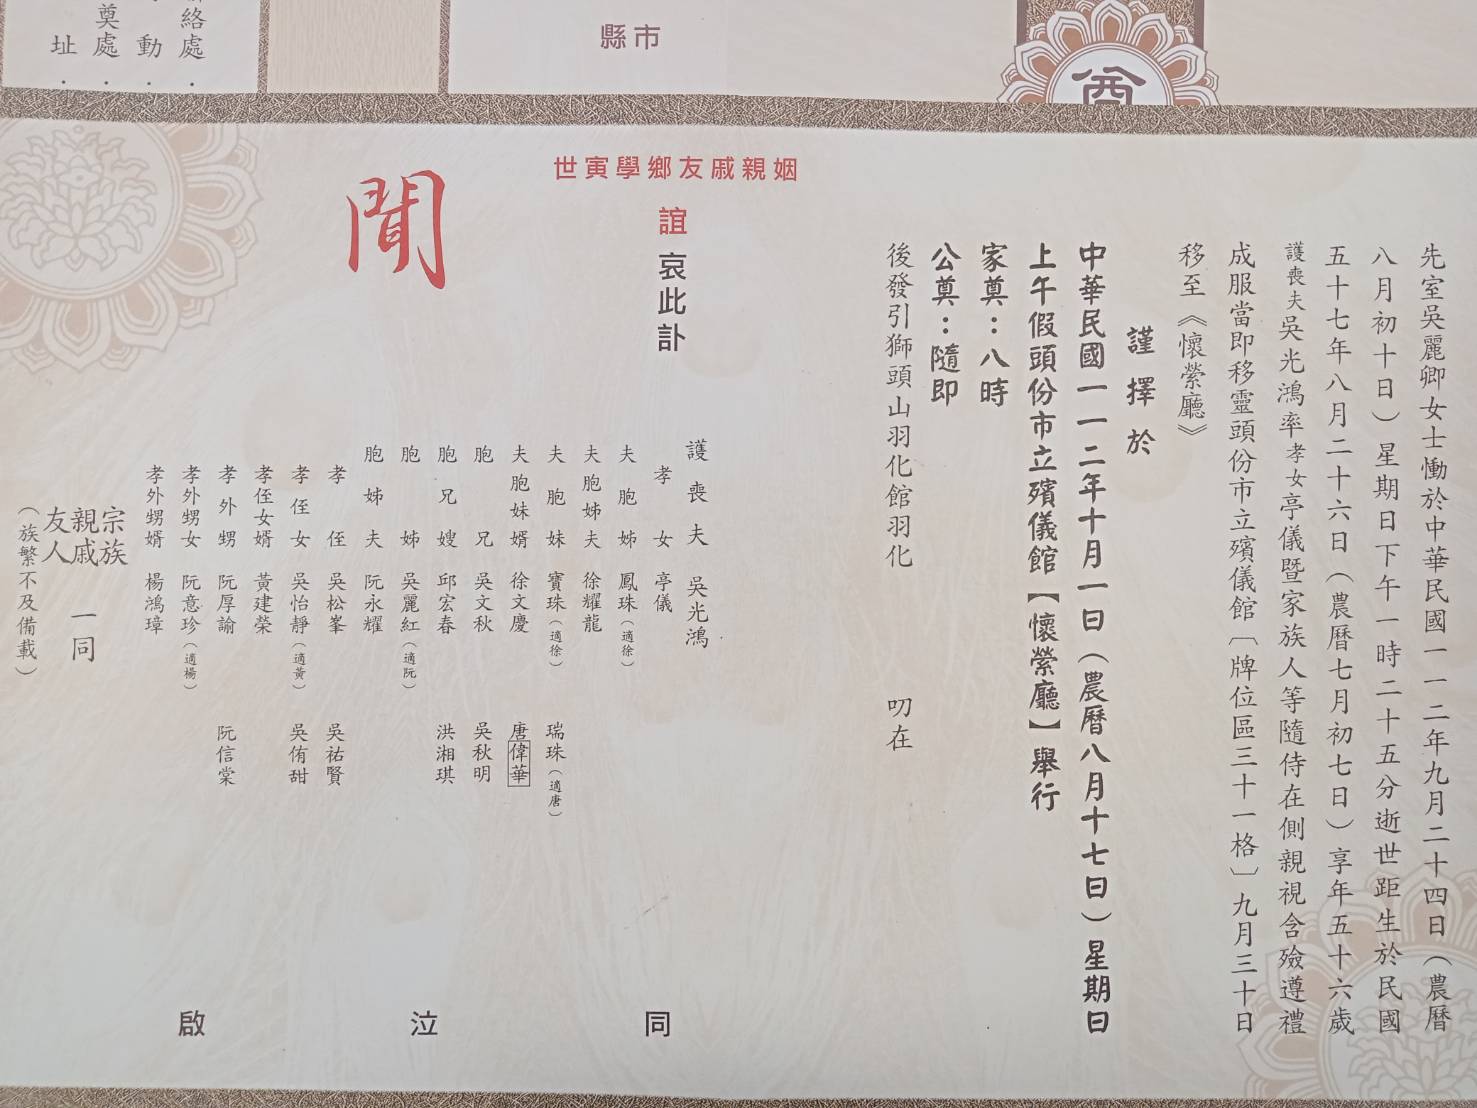 絡處
奠處
動
址
縣市
奠
先室吳麗卿女士慟於中華民國一一二年九月二十四日（農曆
八月初十日）星期日下午一時二十五分逝世距生於民國
五十七年八月二十六日（農曆七月初七日）享年五十六歲
護喪夫吳光鴻率孝女亭儀暨家族人等隨侍在側親視含殮遵禮
成服當即移靈頭份市立殯儀館〔牌位區三十一格〕九月三十日
移至《懷縈廳》
謹擇於
中華民國一一二年十月一日（農曆八月十七日）星期日
上午假頭份市立殯儀館【懷縈廳】舉行
家奠：八時
公奠：隨即
後發引獅頭山羽化館羽化
叨在
姻親戚友鄉學寅世
誼哀此訃
聞
護喪夫 吳光鴻
孝女 亭儀
夫胞姊 鳳珠（適徐）
夫胞姊夫 徐耀龍
夫胞妹 寶珠（適徐） 瑞珠（適唐）
夫胞妹婿 徐文慶 唐偉華
胞兄 吳文秋 吳秋明
胞兄嫂 邱宏春 洪湘琪
胞姊 吳麗紅（適阮）
胞姊夫 阮永耀
孝侄 吳松峯 吳祐賢
孝侄女 吳怡靜（適黃） 吳侑甜
孝侄女婿 黃建榮
孝外甥 阮厚諭 阮信棠
孝外甥女 阮意珍（適楊）
孝外甥婿 楊鴻璋
宗族
親戚 一同
友人
（族繁不及備載）
同泣啟